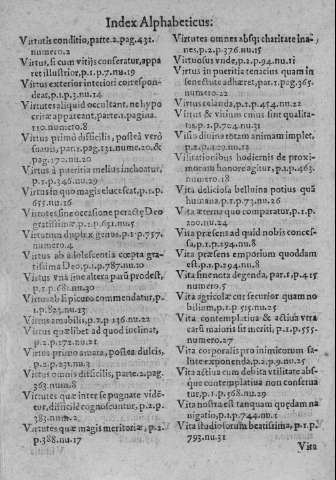 Index Alphabeticus:
Virtutis conditio, parte.2.pag.431.
numero.2
Virtus, si cum vitijs conferatur, appa
ret illustrior, p.1.p.7.nu.19
Virtus exterior interiori correspon-
deat, p.1.p.13.nu.14
Virtutes aliquid occultant, ne hypo
critæ appareant, parte.1.pagina.
110.numero.8
Virtus primò difficilis, posteà verò
suavis, par.1.pag.131.nume.20.&
pag.170.nu.20
Virtus à pueritia melius inchoatur,
p.1.p.346.nu.29
Virtus in quo magis elucescat, p.1.p.
655.nu.16
Virtutes sine occasione peractæ Deo
gratissimæ, p.1.p.631.nu.5
Virtutum duplex genus, p.1.p.757.
numero.4
Virtus ab adolescentia cœpta gra-
tissima Deo, p.1.p.787.nu.20
Virtus vna sine altera parū prodest,
p.1.p.681.nu.30
Virtus ab Epicuro commendatur, p.
1.p.823.nu.23
Virtus amabilis, p.2.p.236.nu.22
Virtus quælibet ad quod inclinat,
p.2.p.172.nu.21
Virtus primo amara, postea dulcis,
p.2.p.231.nu.3
Virtus omnis difficilis, parte.2.pag.
363.num.8
Virtutes quæ inter se pugnate vidē-
tur, difficilè cognoscuntur, p.2.p.
383.num.2
Virtutes quæ magis meritoriæ, p.2.
p.388.nu.17
Virtutes omnes absq; charitate ina-
nes, p.2.p.376.nu.15
Virtuosus vnde, p.2.p.94.nu.11
Virtus in pueritia tenacius quam in
senectute adhæret, par.1.pag.365.
numero.22
Virtus celanda, p.2.p.454.nu.22
Virtus & vitium cuius sint qualita-
tis, p.2.p.704.nu.31
Visio diuina totam animam implet,
p.1.p.429.nu.12
Visitationibus hodiernis de proxi-
morum honore agitur, p.1.p.463.
numero.18
Vita deliciosa belluina potius quā
humana, p.1.p.73.nu.26
Vita æterna quo comparatur, p.1.p.
200.nu.24
Vita præsens ad quid nobis conces-
sa, p.1.p.194.nu.8
Vita præsens emporium quoddam
est, p.1.p.294.nu.8
Vita sine nota degenda, par.1.p.415
numero.5
Vita agricolæ cur securior quam no
bilium, p.1.p.515.nu.25
Vita contemplatiua & actiua vtra
earū maioris sit meriti, p.1.p.555.
numero.27
Vita corporalis pro inimicorum sa-
lute exponenda, p.2.p.9.nu.25
Vita actiua cum debita vtilitate abs-
que contemplatiua non conserua
tur, p.1.p.568.nu.29
Vita nostra est tanquam quædam na
uigatio, p.1.p.744.nu.1
Vita studiosorum beatissima, p.1.p.
793.nu.31
Vita